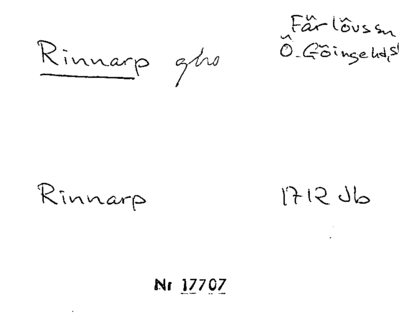 Rinnarp gho
Färlövs sn
Ö. Göinge hd, s
Rinnarp
1712 Jb
Nr 17707